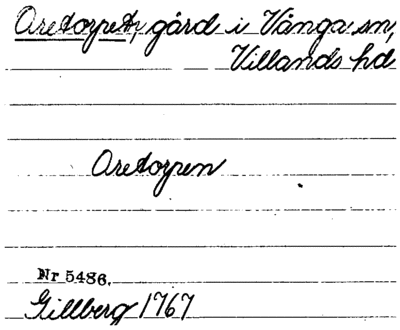 Oretorpet, gård i Vånga sn,
Villands hd
Oretorpen
Nr 5486.
Gillberg 1767